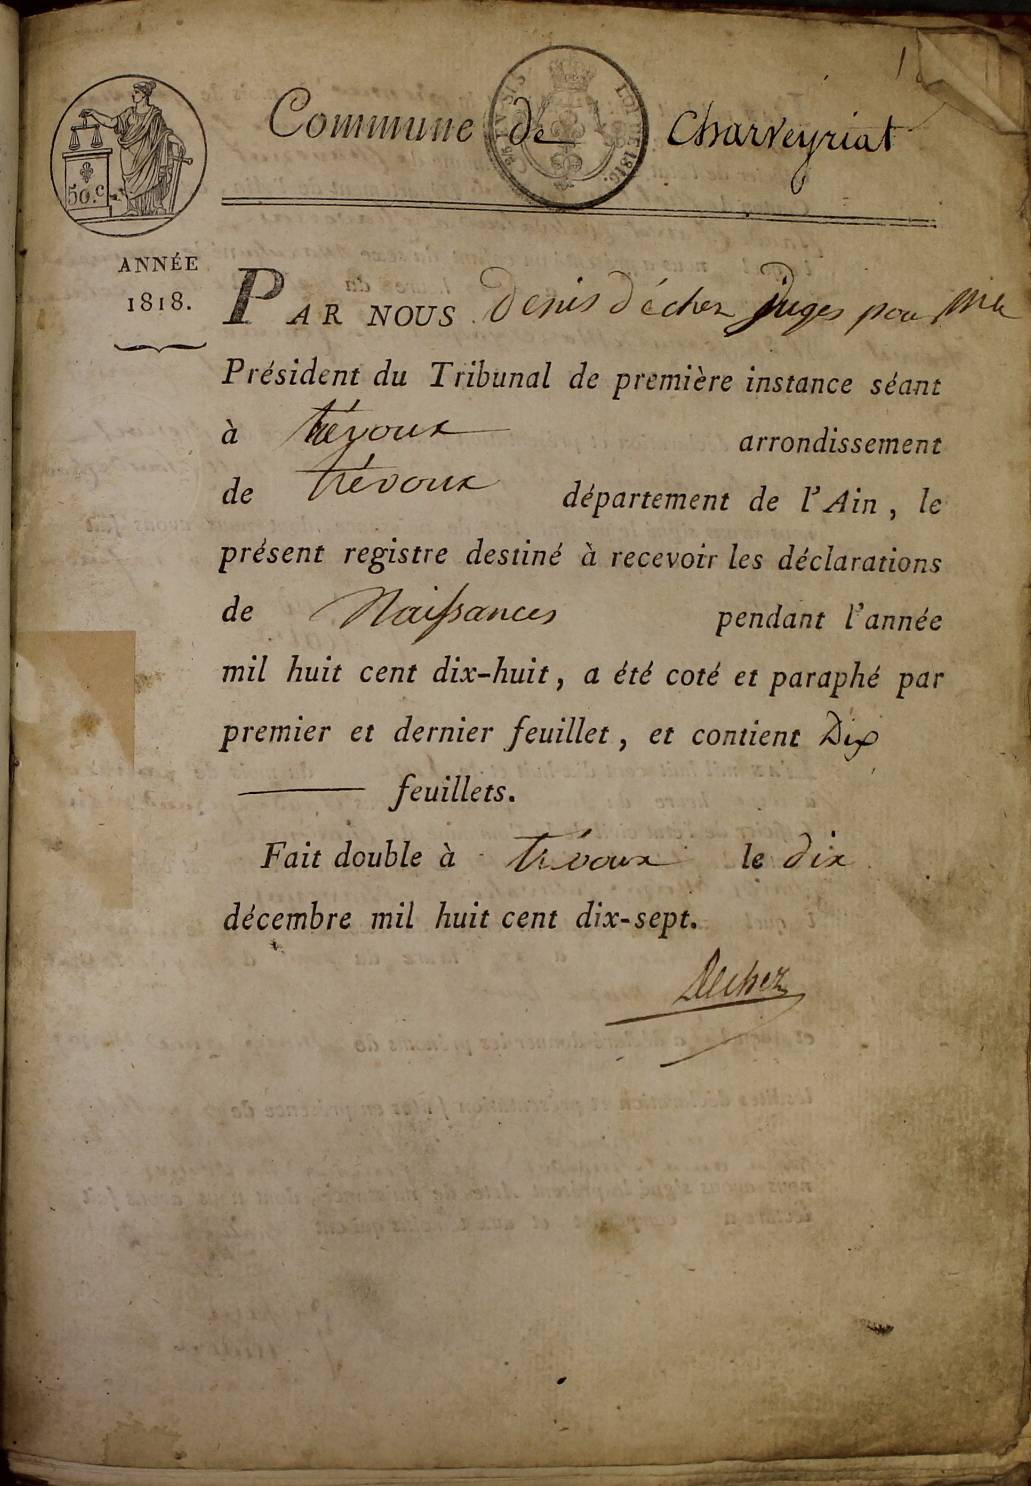 Commune de Charveyriat
50.c
LOI DE 1816.
ANNÉE
1818.
PAR NOUS Denis Déchez Juges pour Mr le
Président du Tribunal de première instance séant
à trévoux arrondissement
de trévoux département de l'Ain, le
présent registre destiné à recevoir les déclarations
de Naissances pendant l'année
mil huit cent dix-huit, a été coté et paraphé par
premier et dernier feuillet, et contient Dix
feuillets.
Fait double à trévoux le dix
décembre mil huit cent dix-sept.
Dechez